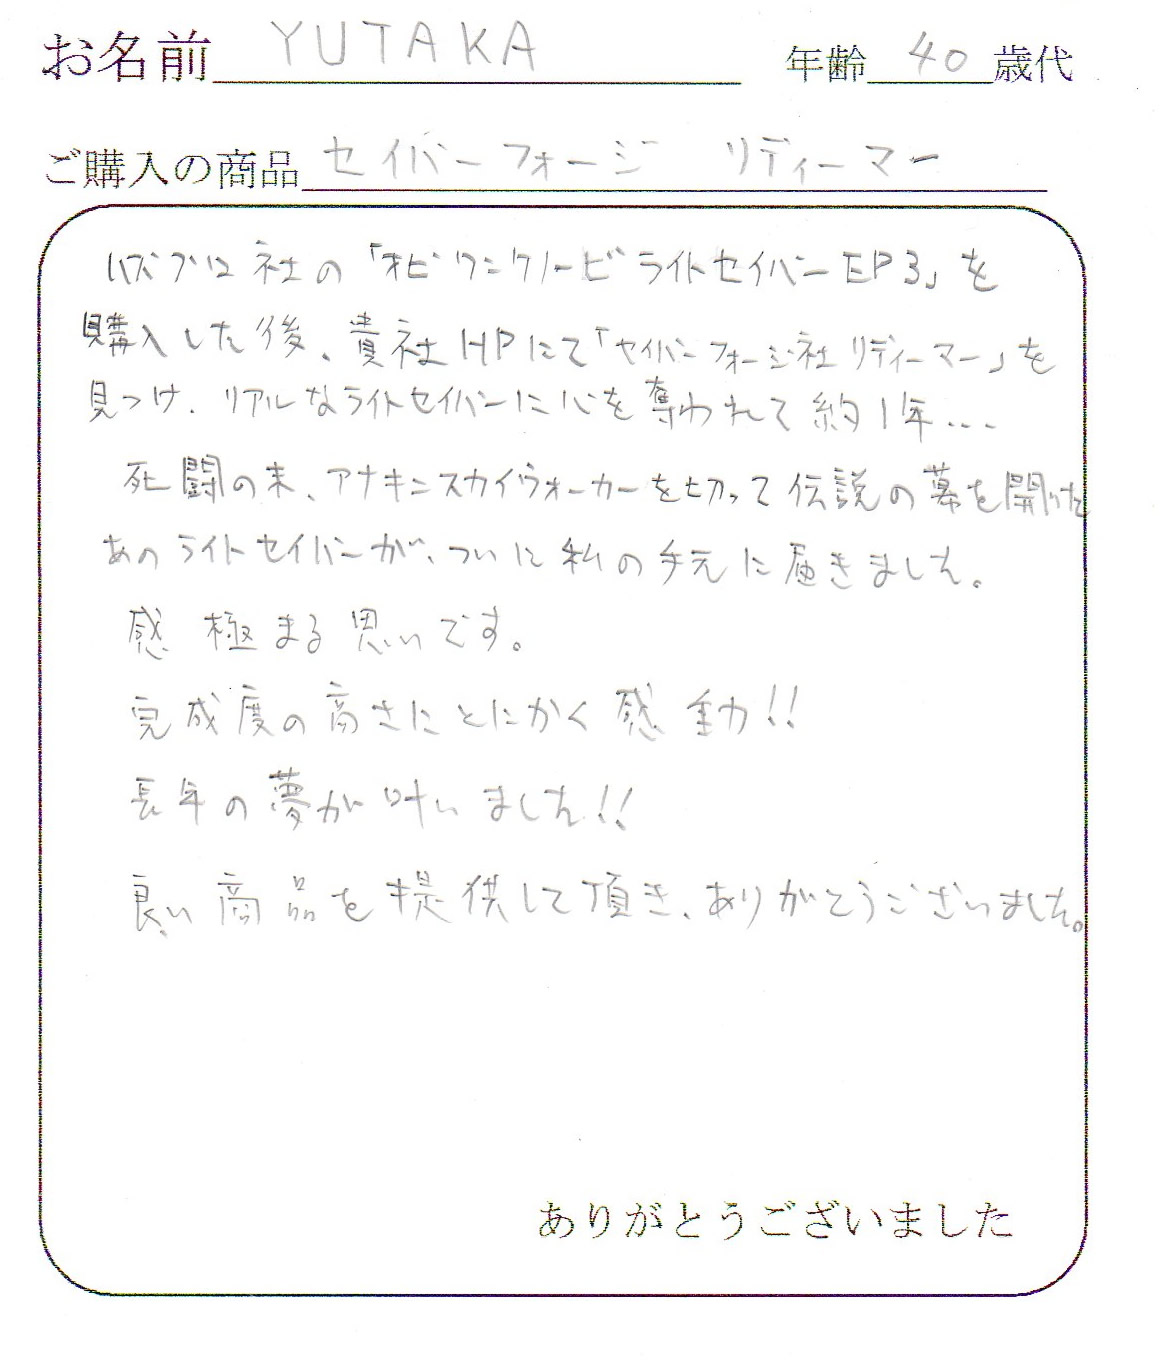 お名前 YUTAKA 年齢 40 歳代
ご購入の商品 セイバーフォージ リディーマー
ハズブロ社の「オビワンケノービ ライトセイバー EP3」を
購入した後、貴社HPにて「セイバーフォージ社 リディーマー」を
見つけ、リアルなライトセイバーに心を奪われて約1年...
死闘の末、アナキンスカイウォーカーを切って伝説の幕を開けた
あのライトセイバーが、ついに私の手元に届きました。
感極まる思いです。
完成度の高さにとにかく感動!!
長年の夢が叶いました!!
良い商品を提供して頂き、ありがとうございました。
ありがとうございました